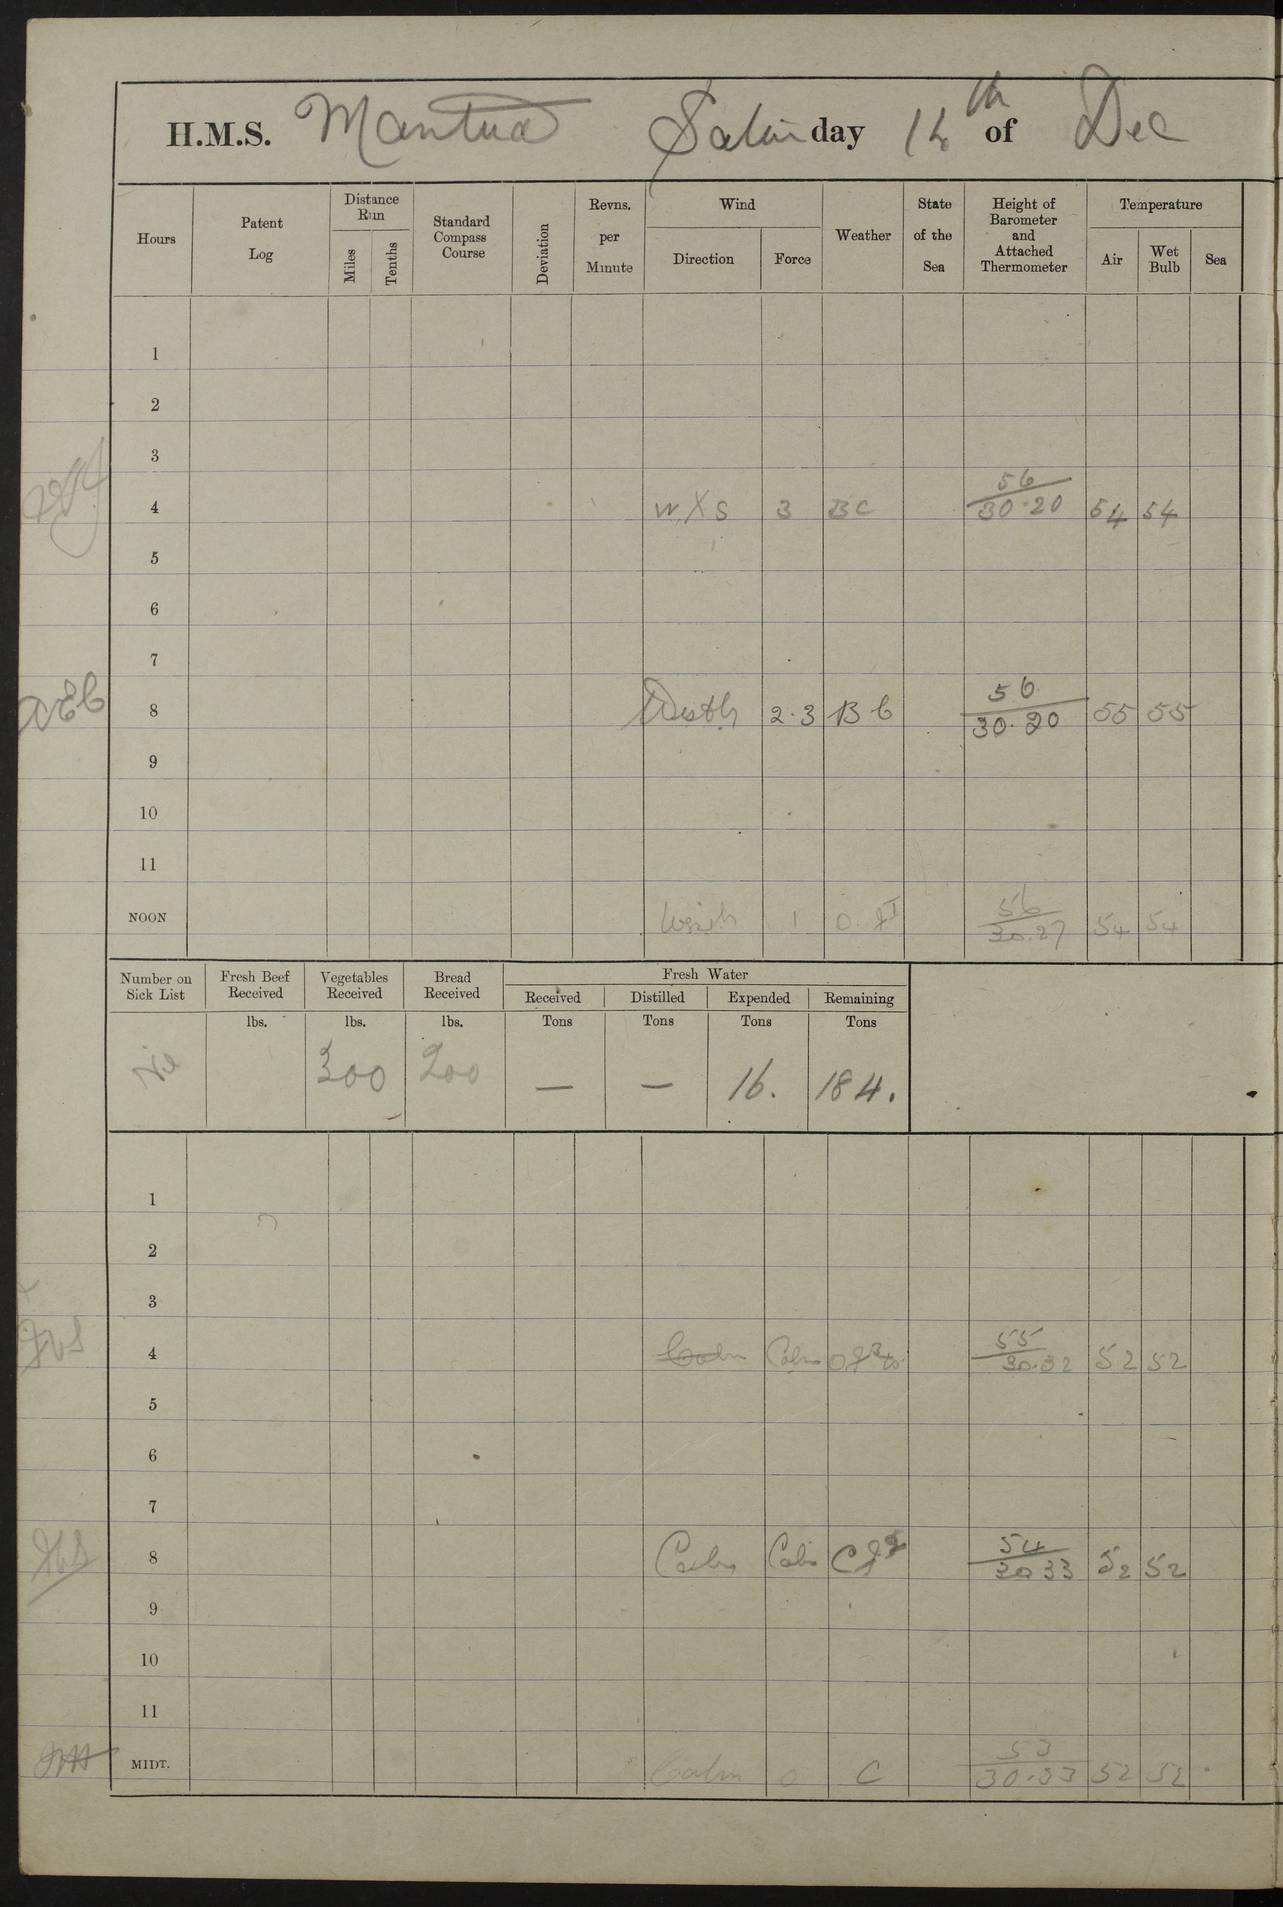 H.M.S. Mantua Saturday 14th of Dec
Hours Patent Log Distance Run Miles Tenths Standard Compass Course Deviation Revns. per Minute Wind Direction Force Weather State of the Sea Height of Barometer and Attached Thermometer Temperature Air Wet Bulb Sea
1
2
3
4 W X S 3 BC 56 30.20 54 54
5
6
7
8 West 2.3 B C 56 30.20 55 55
9
10
11
NOON 1 O 56 30.27 54 54
Number on Sick List Fresh Beef Received Vegetables Received Bread Received Fresh Water
Received Distilled Expended Remaining
lbs. lbs. lbs. Tons Tons Tons Tons
Nil 300 200 — — 16. 184.
1
2
3
4 Calm Calm 55 30.32 52 52
5
6
7
8 Calm Calm 54 30 33 52 52
9
10
11
MIDT. Calm 0 C 53 30.33 52 52